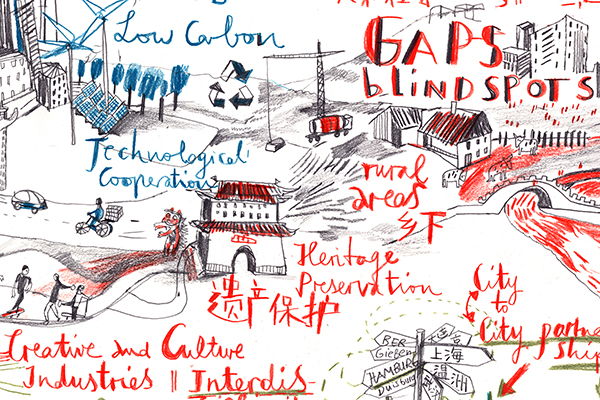 Low Carbon
GAPS
blINDSPOTS
Technological
Cooperation
rural
areas
乡下
Heritage
Preservation
遗产保护
City
to
City partner
ship
BER
Gießen
上海
HAMBURG
温洲
Duisburg
Creative and Culture
Industries || Interdis-